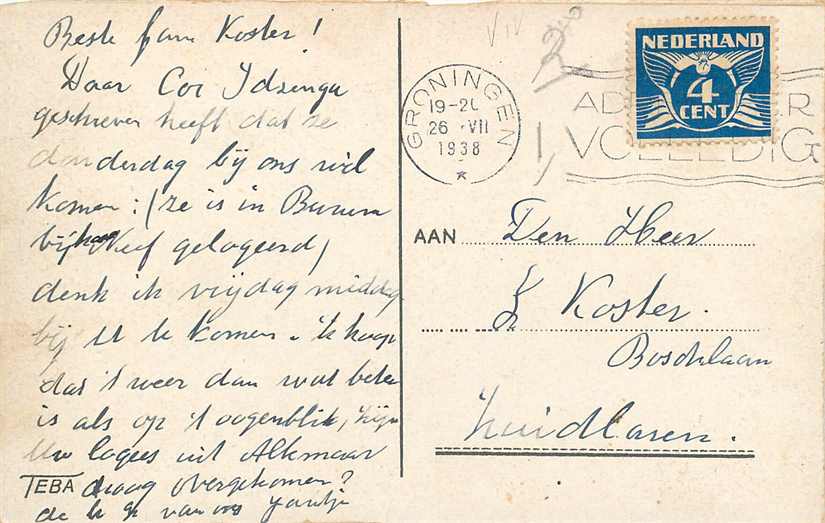 Beste fam Koster!
Daar Cor Idzenga
geschreven heeft dat ze
donderdag bij ons wil
komen: (ze is in Burum
bij haar neef gelogeerd)
denk ik vrijdag middag
bij U te komen. 'k hoop
dat 't weer dan wat beter
is als op 't oogenblik, zijn
Uw logees uit Alkmaar
droog overgekomen?
de h g van ons Jantje
TEBA
GRONINGEN
19-20
26 VII
1938
NEDERLAND
4
CENT
VOLLEDIG
AAN Den Heer
Koster.
Boschlaan
Zuidlaren.